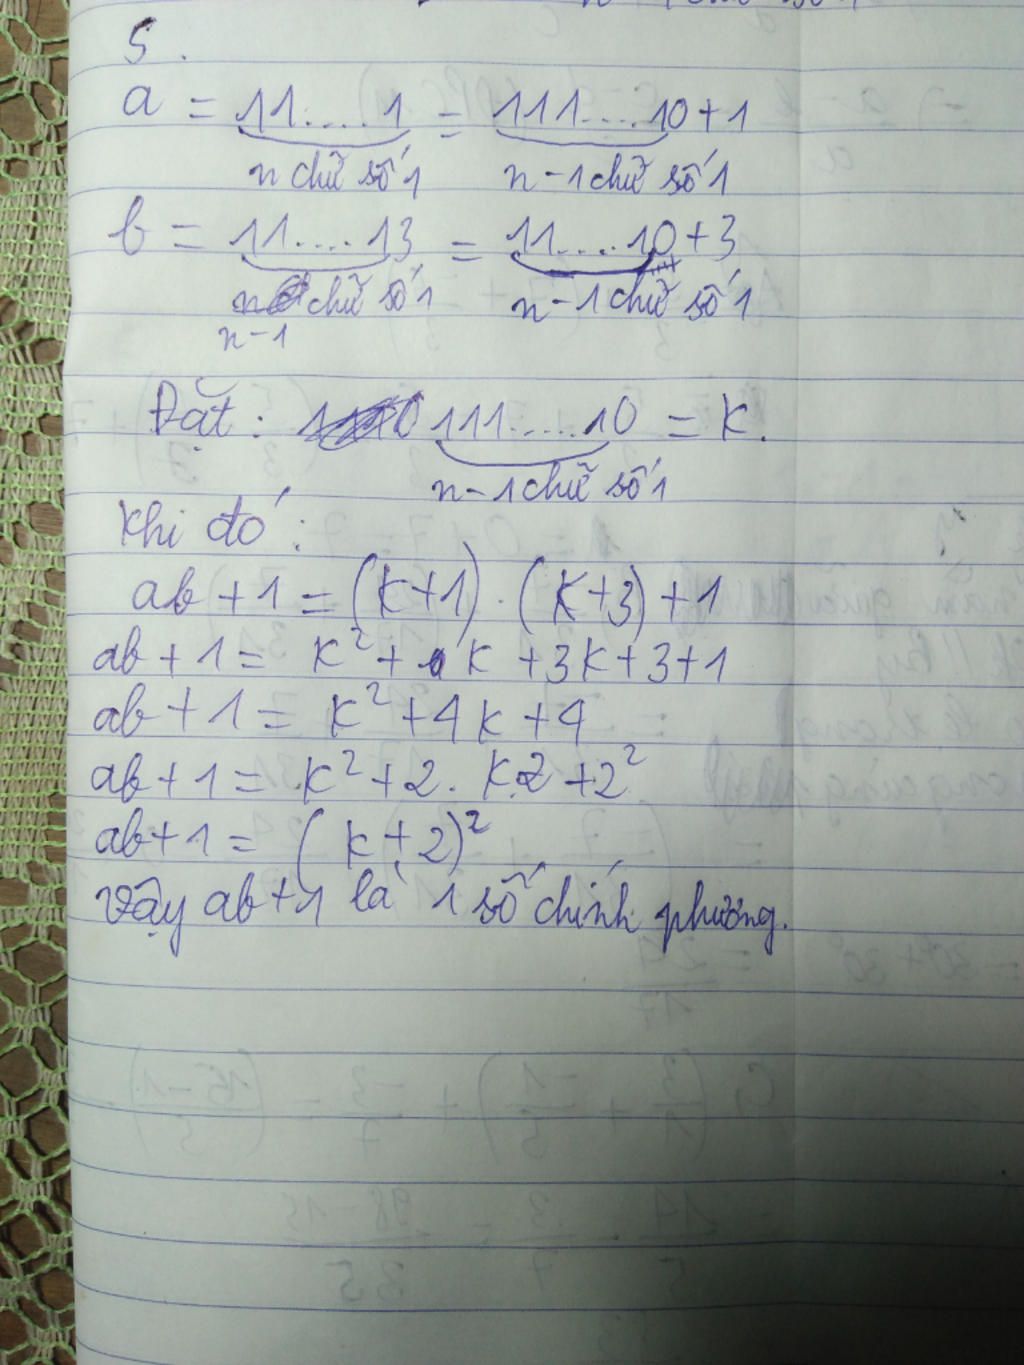 5.
a = 11....1 = 111....10+1
n chữ số 1 n-1 chữ số 1
b = 11....13 = 11....10+3
n chữ số 1 n-1 chữ số 1
n-1
Đặt: 111.....10 = K.
n-1 chữ số 1
Khi đó:
ab+1 = (K+1).(K+3)+1
ab+1= K²+ K +3K+3+1
ab+1= K²+4K+4
ab+1= K²+2.K.2+2²
ab+1= (K+2)²
Vậy ab+1 là 1 số chính phương.